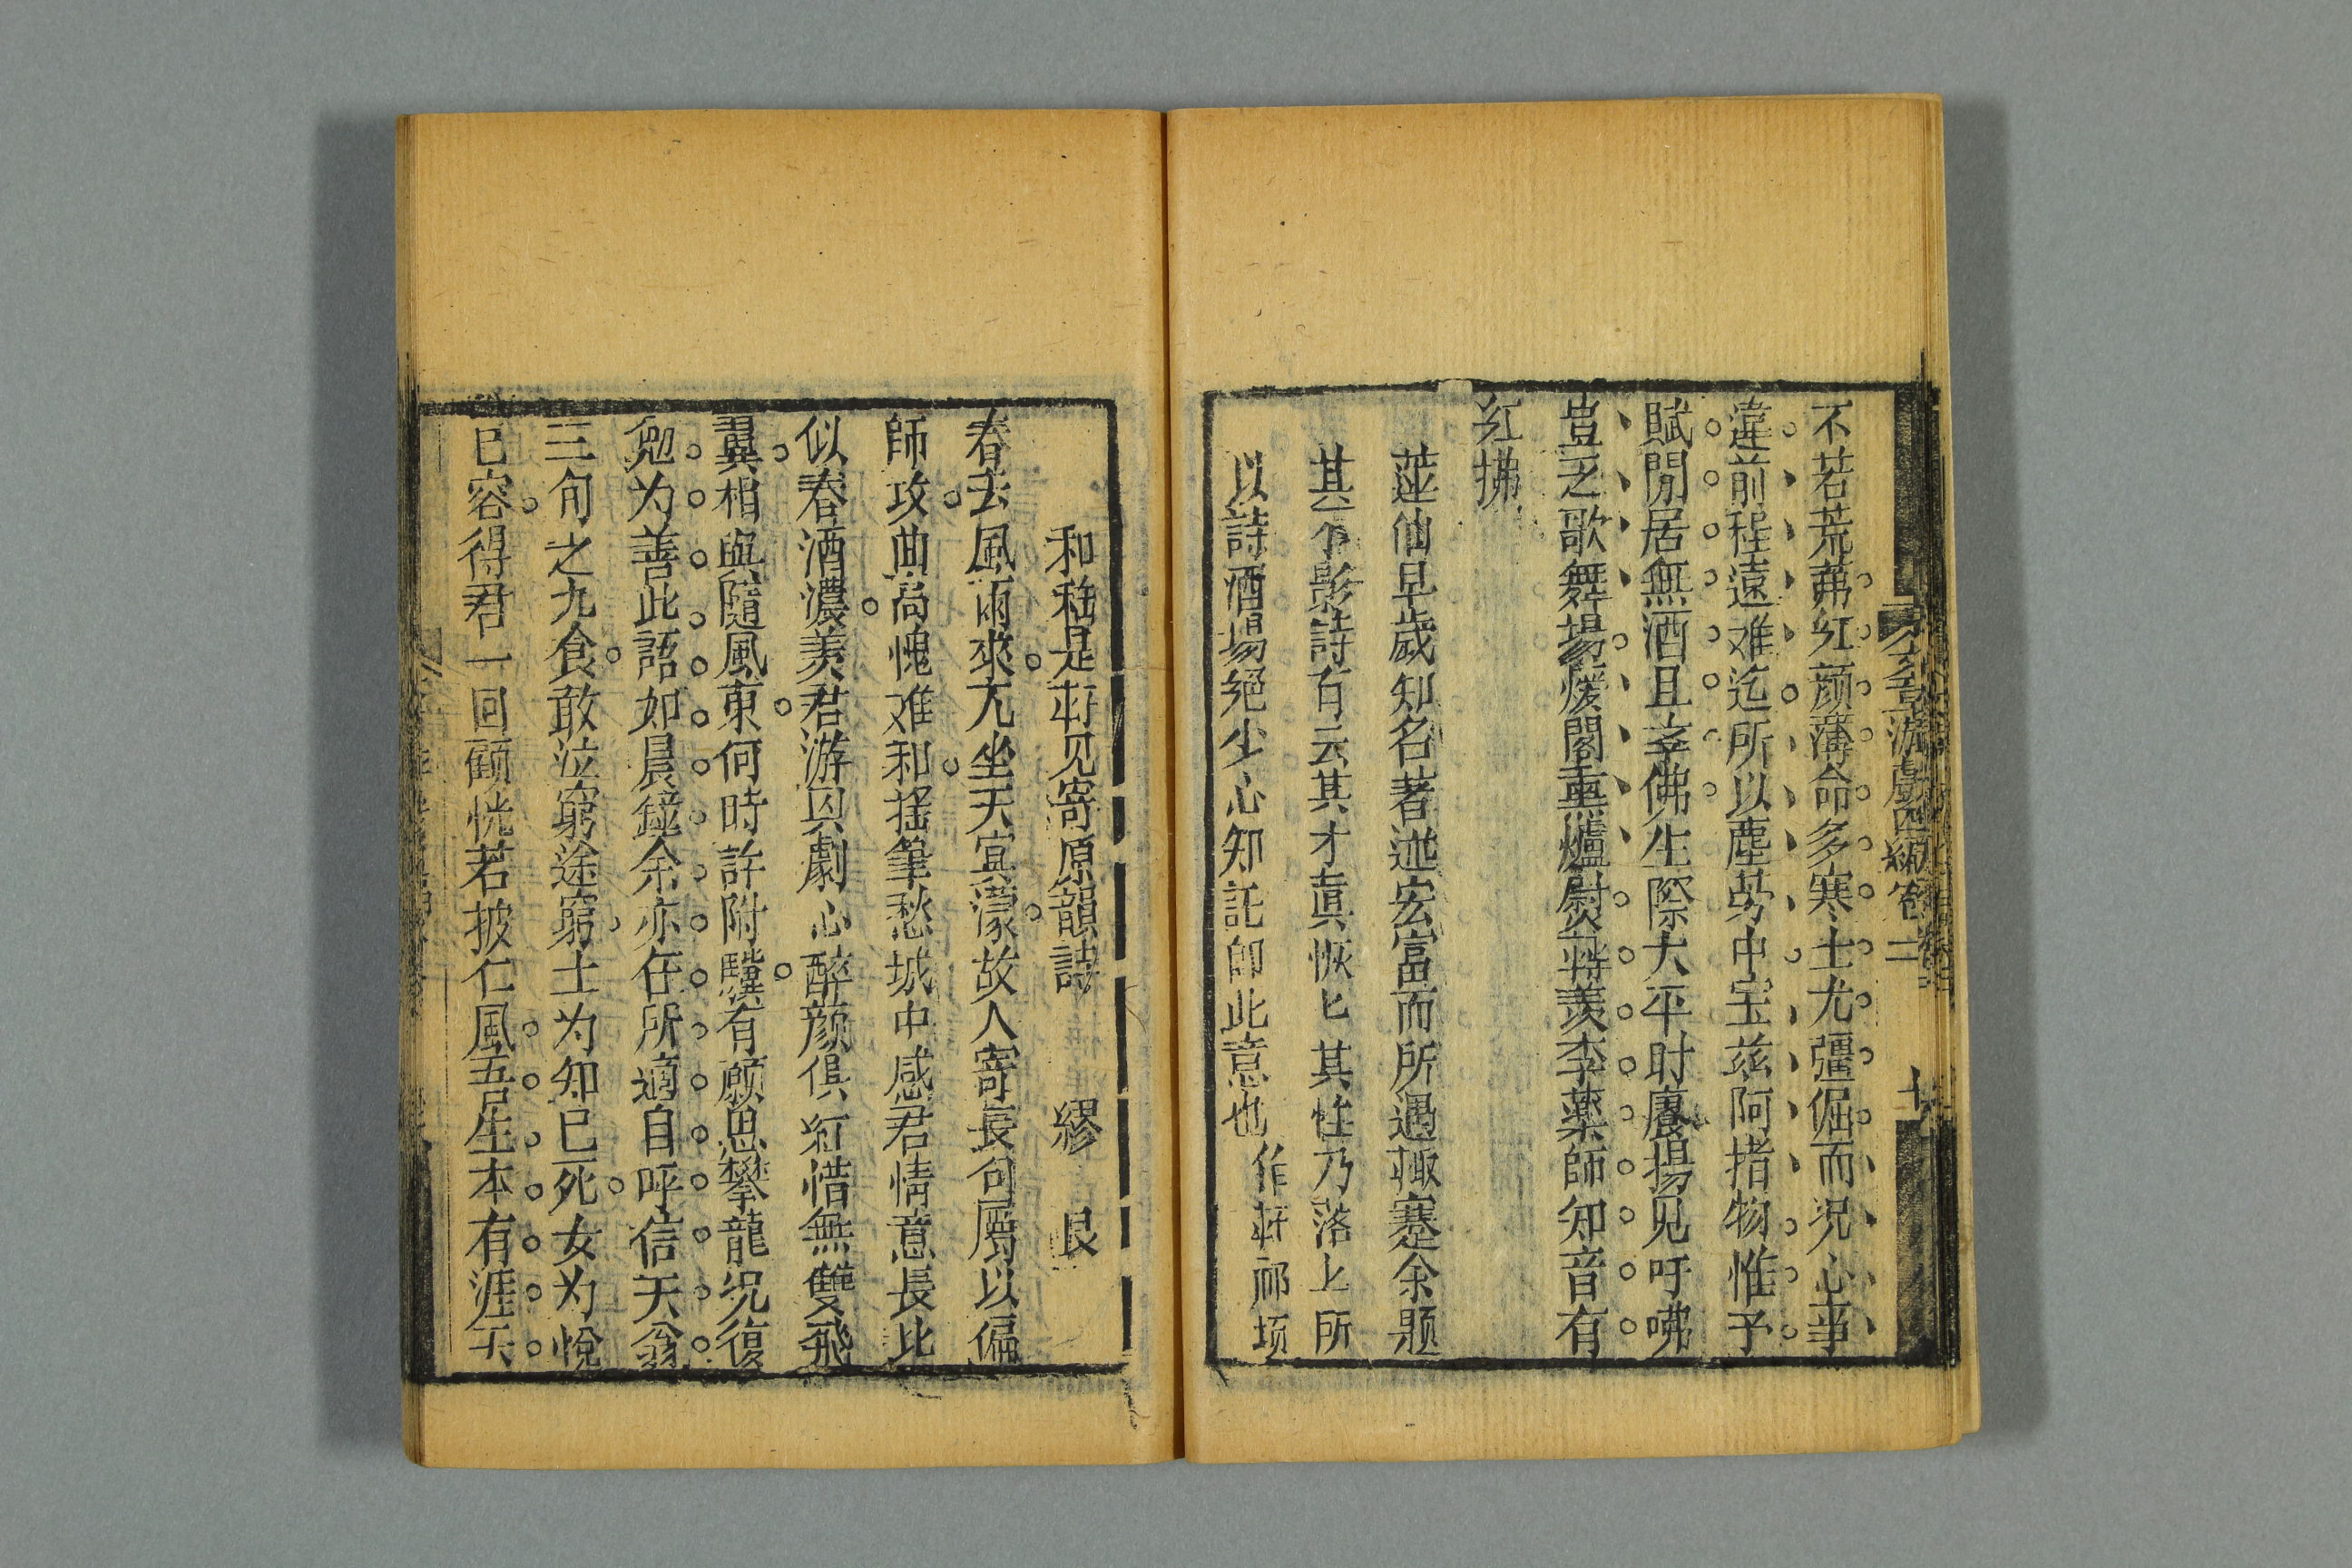 不若荒茀紅顔薄命多寒士尤彊倔而况心事
違前程遠难迄所以塵勞中宝兹阿揩物惟予
賦閒居無酒且幸佛生際大平时賡揚见吁咈
豈乏歌舞場煖閣熏爐尉特羡李薬師知音有
紅拂
蓮仙早歲知名著述宏富而所遇輒蹇余题
其小影詩有云其才真恢匕其性乃落上所
以詩酒場絕少心知託卽此意也
和嵇是邨见寄原韻詩 繆 艮
春去風雨來兀坐天宜濛故人寄長句属以偏
師攻曲高愧难和搖筆愁城中感君情意長比
似春酒濃羡君游囚劇心醉颜俱紅惜無雙飛
翼相與隨風東何時許附驥有願思攀龍况復
勉为善此語如晨鐘余亦任所適自呼信天翁
三旬之九食敢泣窮途窮士为知已死女为悅
已容得君一回顧恍若披仁風吾生本有涯天